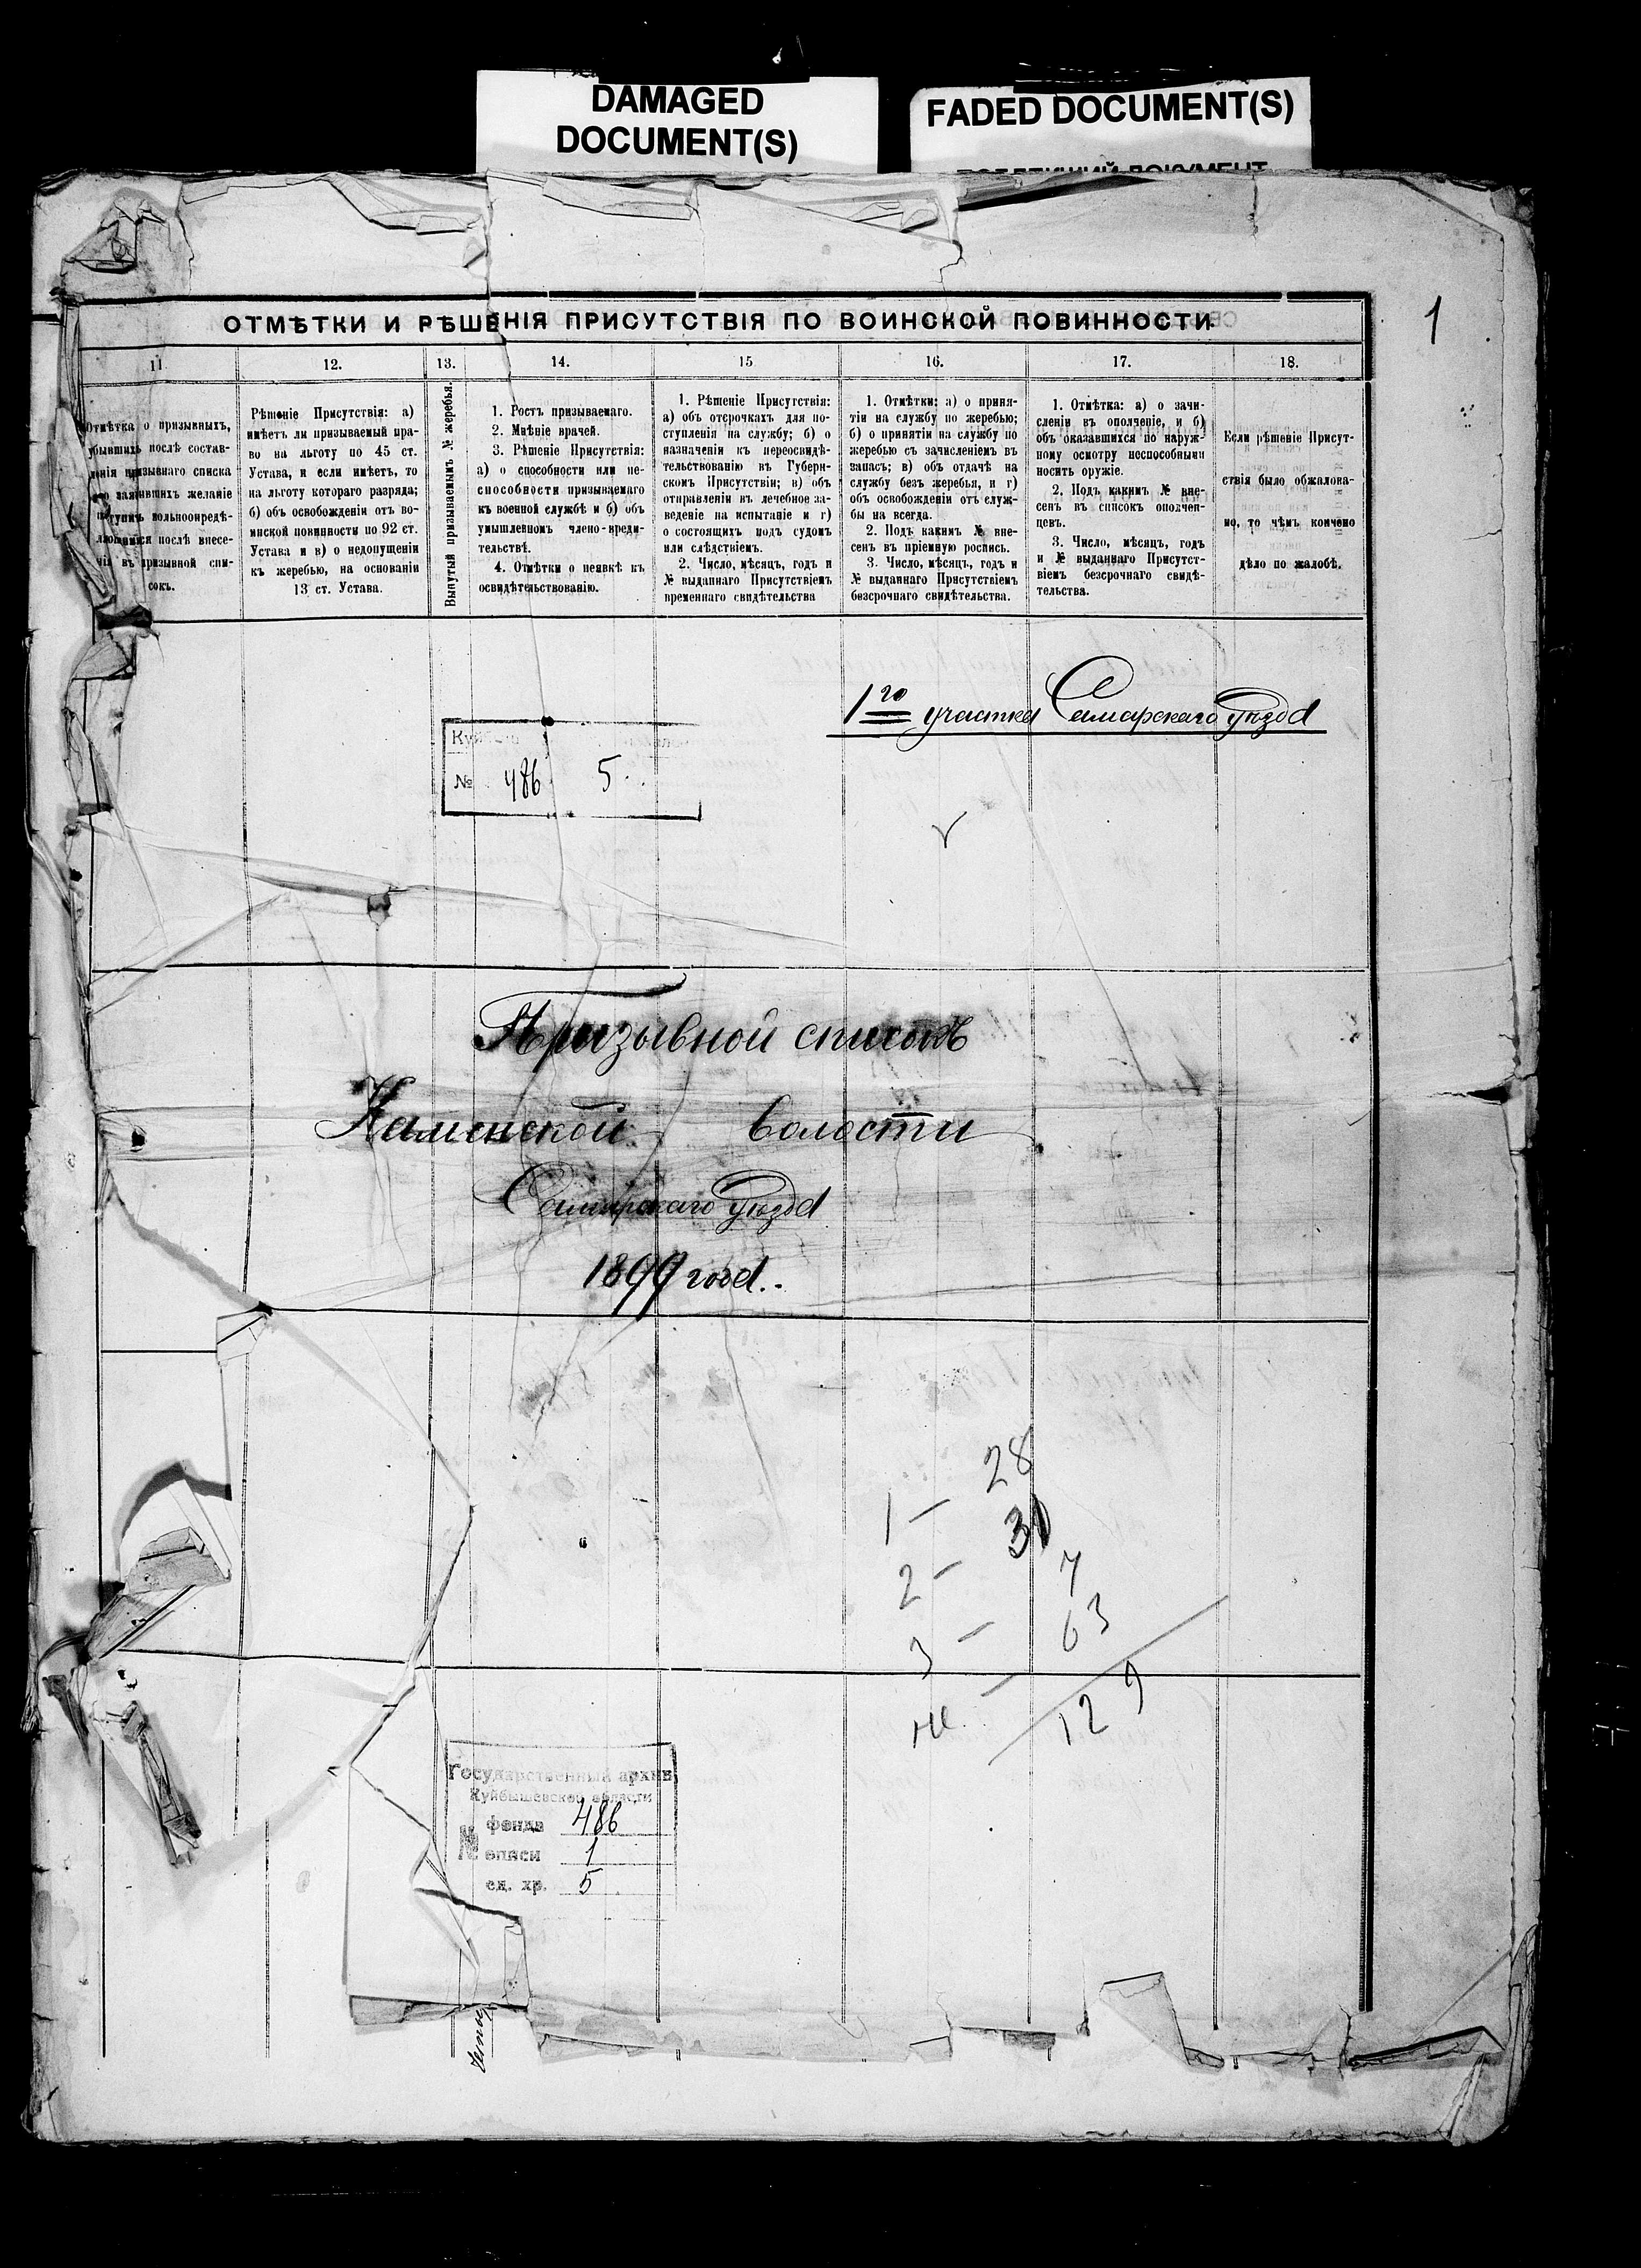 DAMAGED
DOCUMENT(S)
FADED DOCUMENT(S)
1
ОТМѢТКИ И РѢШЕНІЯ ПРИСУТСТВІЯ ПО ВОИНСКОЙ ПОВИННОСТИ.
11
12.
13.
14.
15
16.
17.
18.
Отмѣтка о призывныхъ,
убывшихъ послѣ состав-
ленія призывнаго списка
заявившихъ желаніе
вольноопредѣ-
послѣ внесе-
въ призывной спи-
сокъ.
Рѣшеніе Присутствія: а)
имѣетъ ли призываемый пра-
во на льготу по 45 ст.
Устава, и если имѣетъ, то
на льготу котораго разряда;
б) объ освобожденіи отъ во-
инской повинности по 92 ст.
Устава и в) о недопущеніи
къ жеребью, на основаніи
13 ст. Устава.
Вынутый призываемымъ № жеребья.
1. Ростъ призываемаго.
2. Мнѣніе врачей.
3. Рѣшеніе Присутствія:
а) о способности или не-
способности призываемаго
къ военной службѣ и б) объ
умышленномъ члено-вреди-
тельствѣ.
4. Отмѣтки о неявкѣ къ
освидѣтельствованію.
1. Рѣшеніе Присутствія:
а) объ отсрочкахъ для по-
ступленія на службу; б) о
назначеніи къ переосвидѣ-
тельствованію въ Губерн-
скомъ Присутствіи; в) объ
отправленіи въ лечебное за-
веденіе на испытаніе и г)
о состоящихъ подъ судомъ
или слѣдствіемъ.
2. Число, мѣсяцъ, годъ и
№ выданнаго Присутствіемъ
временнаго свидѣтельства
1. Отмѣтки: а) о приня-
тіи на службу по жеребью;
б) о принятіи на службу по
жеребью съ зачисленіемъ въ
запасъ; в) объ отдачѣ на
службу безъ жеребья, и г)
объ освобожденіи отъ служ-
бы на всегда.
2. Подъ какимъ № вне-
сенъ въ пріемную роспись.
3. Число, мѣсяцъ, годъ и
№ выданнаго Присутствіемъ
безсрочнаго свидѣтельства.
1. Отмѣтка: а) о зачи-
сленіи въ ополченіе, и б)
объ оказавшихся по наруж-
ному осмотру неспособными
носить оружіе.
2. Подъ какимъ № вне-
сенъ въ списокъ ополчен-
цевъ.
3. Число, мѣсяцъ, годъ
и № выданнаго Присутст-
віемъ безсрочнаго свидѣ-
тельства.
Если рѣшеніе Присут-
ствія было обжалова-
но, то чѣмъ кончено
дѣло по жалобѣ.
1го участка Самарскаго уѣзда
№ 486 5
Призывной списокъ
Каменской волости
Самарскаго уѣзда
1899 года.
1 — 28
2 — 31
3 — 7
не — 63
129
Государственный архив
Куйбышевской области
№ фонда 486
описи 1
ед. хр. 5